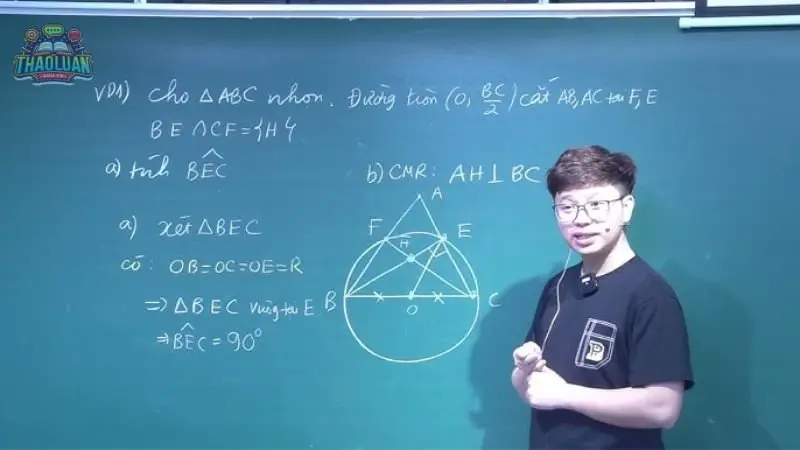 THAOLUAN
VD1) Cho △ABC nhọn. Đường tròn (O, BC/2) cắt AB, AC tại F, E
BE ∩ CF = {H}
a) tính BÊC
b) CMR: AH ⊥ BC
a) xét △BEC
có: OB=OC=OE=R
=> △BEC vuông tại E
=> BÊC = 90°
A
F
E
H
B
O
C